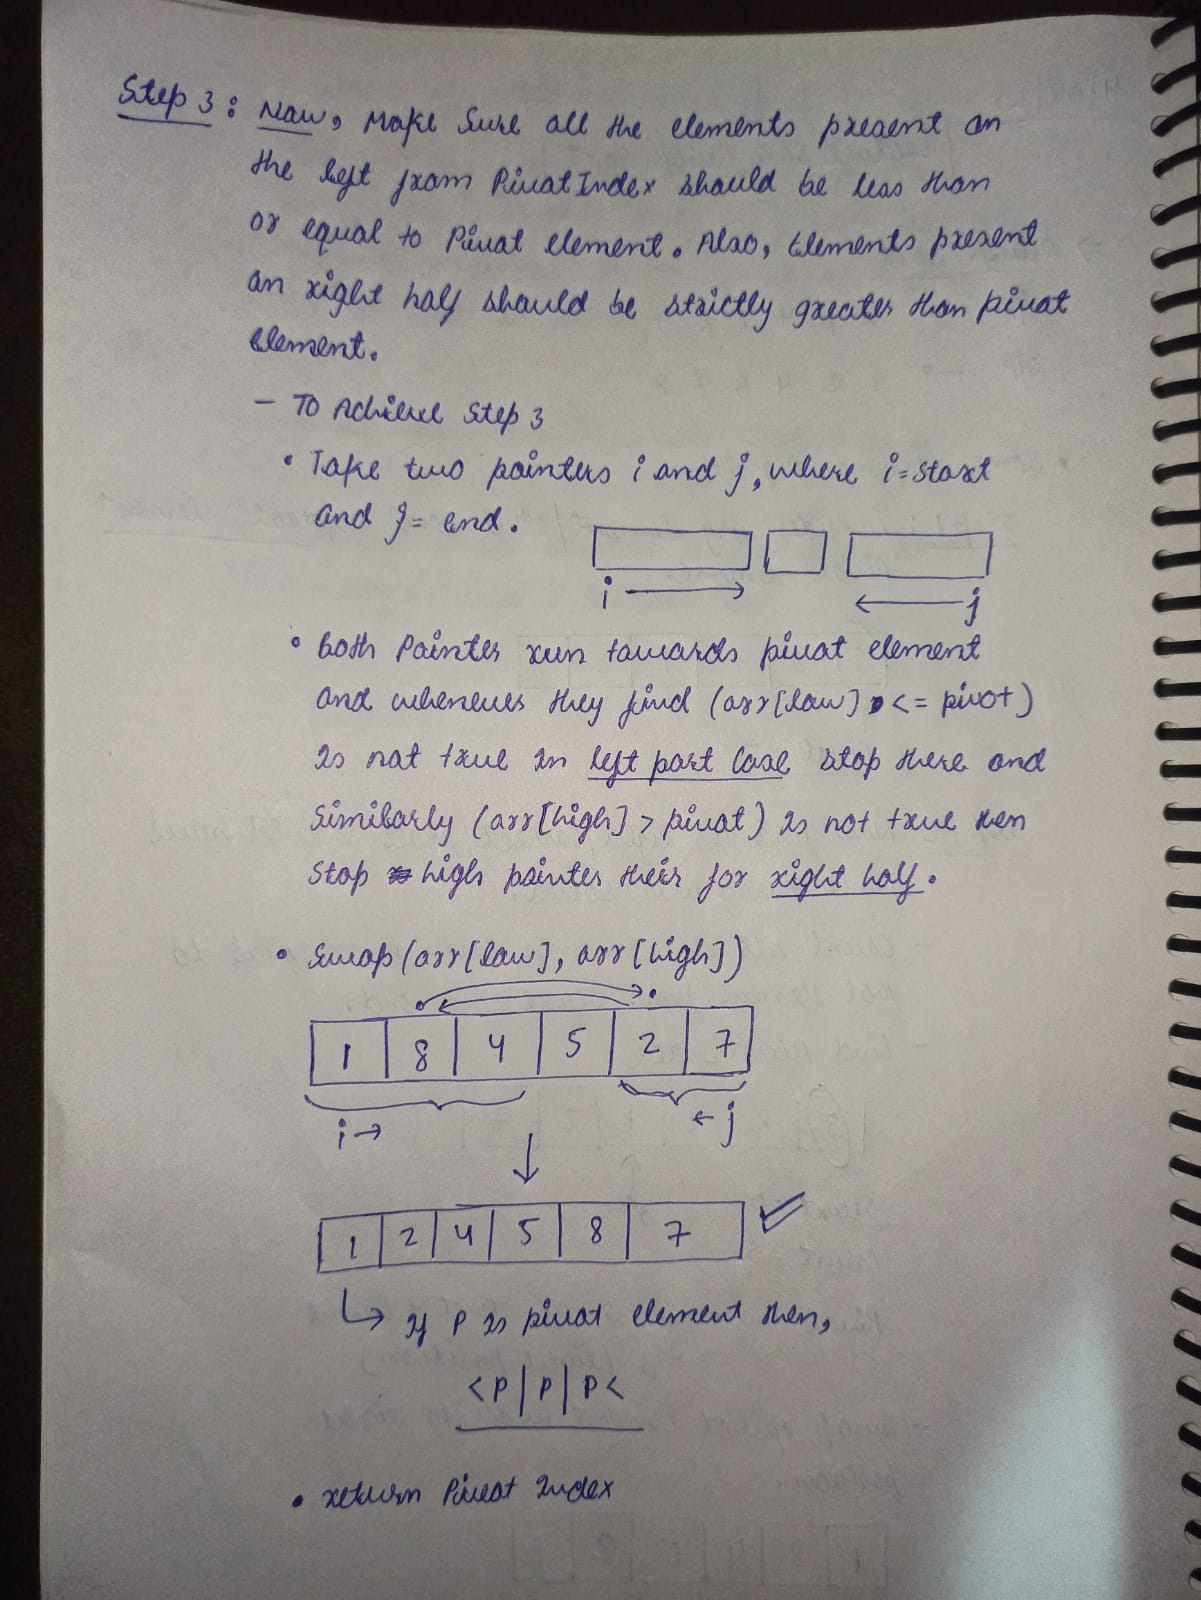 Step 3: Now, Make Sure all the elements present on
the left from Pivot Index should be less than
or equal to Pivot element. Also, Elements present
on right half should be strictly greater than pivot
Element.
- To Achieve Step 3
• Take two pointers i and j, where i = start
and j = end.
i j
• both Pointer run towards pivot element
and whenever they find (arr[low] <= pivot)
is not true in left part Case stop there and
similarly (arr[high] > pivot) is not true then
stop high pointer their for right half.
• Swap (arr[low], arr[high])
1 8 4 5 2 7
i → ← j
1 2 4 5 8 7
if P is pivot element then,
<P | P | P<
• return Pivot Index